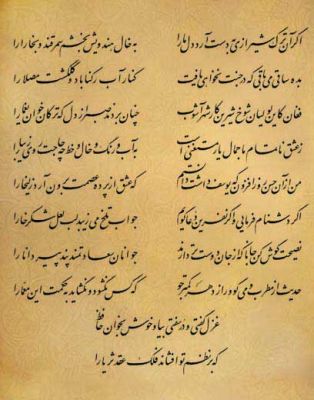 اگر آن ترک شیرازی به دست آرد دل ما را به خال هندویش بخشم سمرقند و بخارا را
بده ساقی می باقی که در جنت نخواهی یافت کنار آب رکناباد و گلگشت مصلا را
فغان کاین لولیان شوخ شیرین کار شهرآشوب چنان بردند صبر از دل که ترکان خوان یغما را
ز عشق ناتمام ما جمال یار مستغنی است به آب و رنگ و خال و خط چه حاجت روی زیبا را
من از آن حسن روزافزون که یوسف داشت دانستم که عشق از پرده عصمت برون آرد زلیخا را
اگر دشنام فرمایی و گر نفرین دعا گویم جواب تلخ می زیبد لب لعل شکرخا را
نصیحت گوش کن جانا که از جان دوست تر دارند جوانان سعادتمند پند پیر دانا را
حدیث از مطرب و می گو و راز دهر کمتر جو که کس نگشود و نگشاید به حکمت این معما را
غزل گفتی و در سفتی بیا و خوش بخوان حافظ
که بر نظم تو افشاند فلک عقد ثریا را